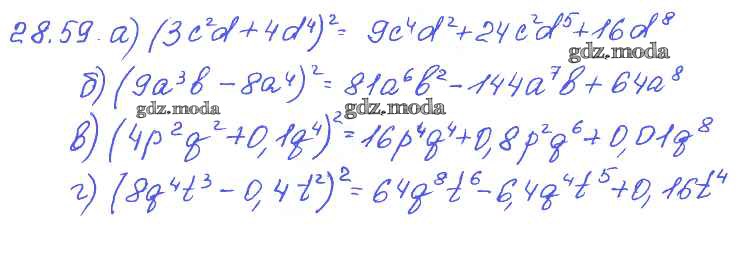 28.59. а) (3c²d + 4d⁴)² = 9c⁴d² + 24c²d⁵ + 16d⁸
gdz.moda
б) (9a³b - 8a⁴)² = 81a⁶b² - 144a⁷b + 64a⁸
gdz.moda gdz.moda
в) (4p²q² + 0,1q⁴)² = 16p⁴q⁴ + 0,8p²q⁶ + 0,01q⁸
г) (8q⁴t³ - 0,4t²)² = 64q⁸t⁶ - 6,4q⁴t⁵ + 0,16t⁴